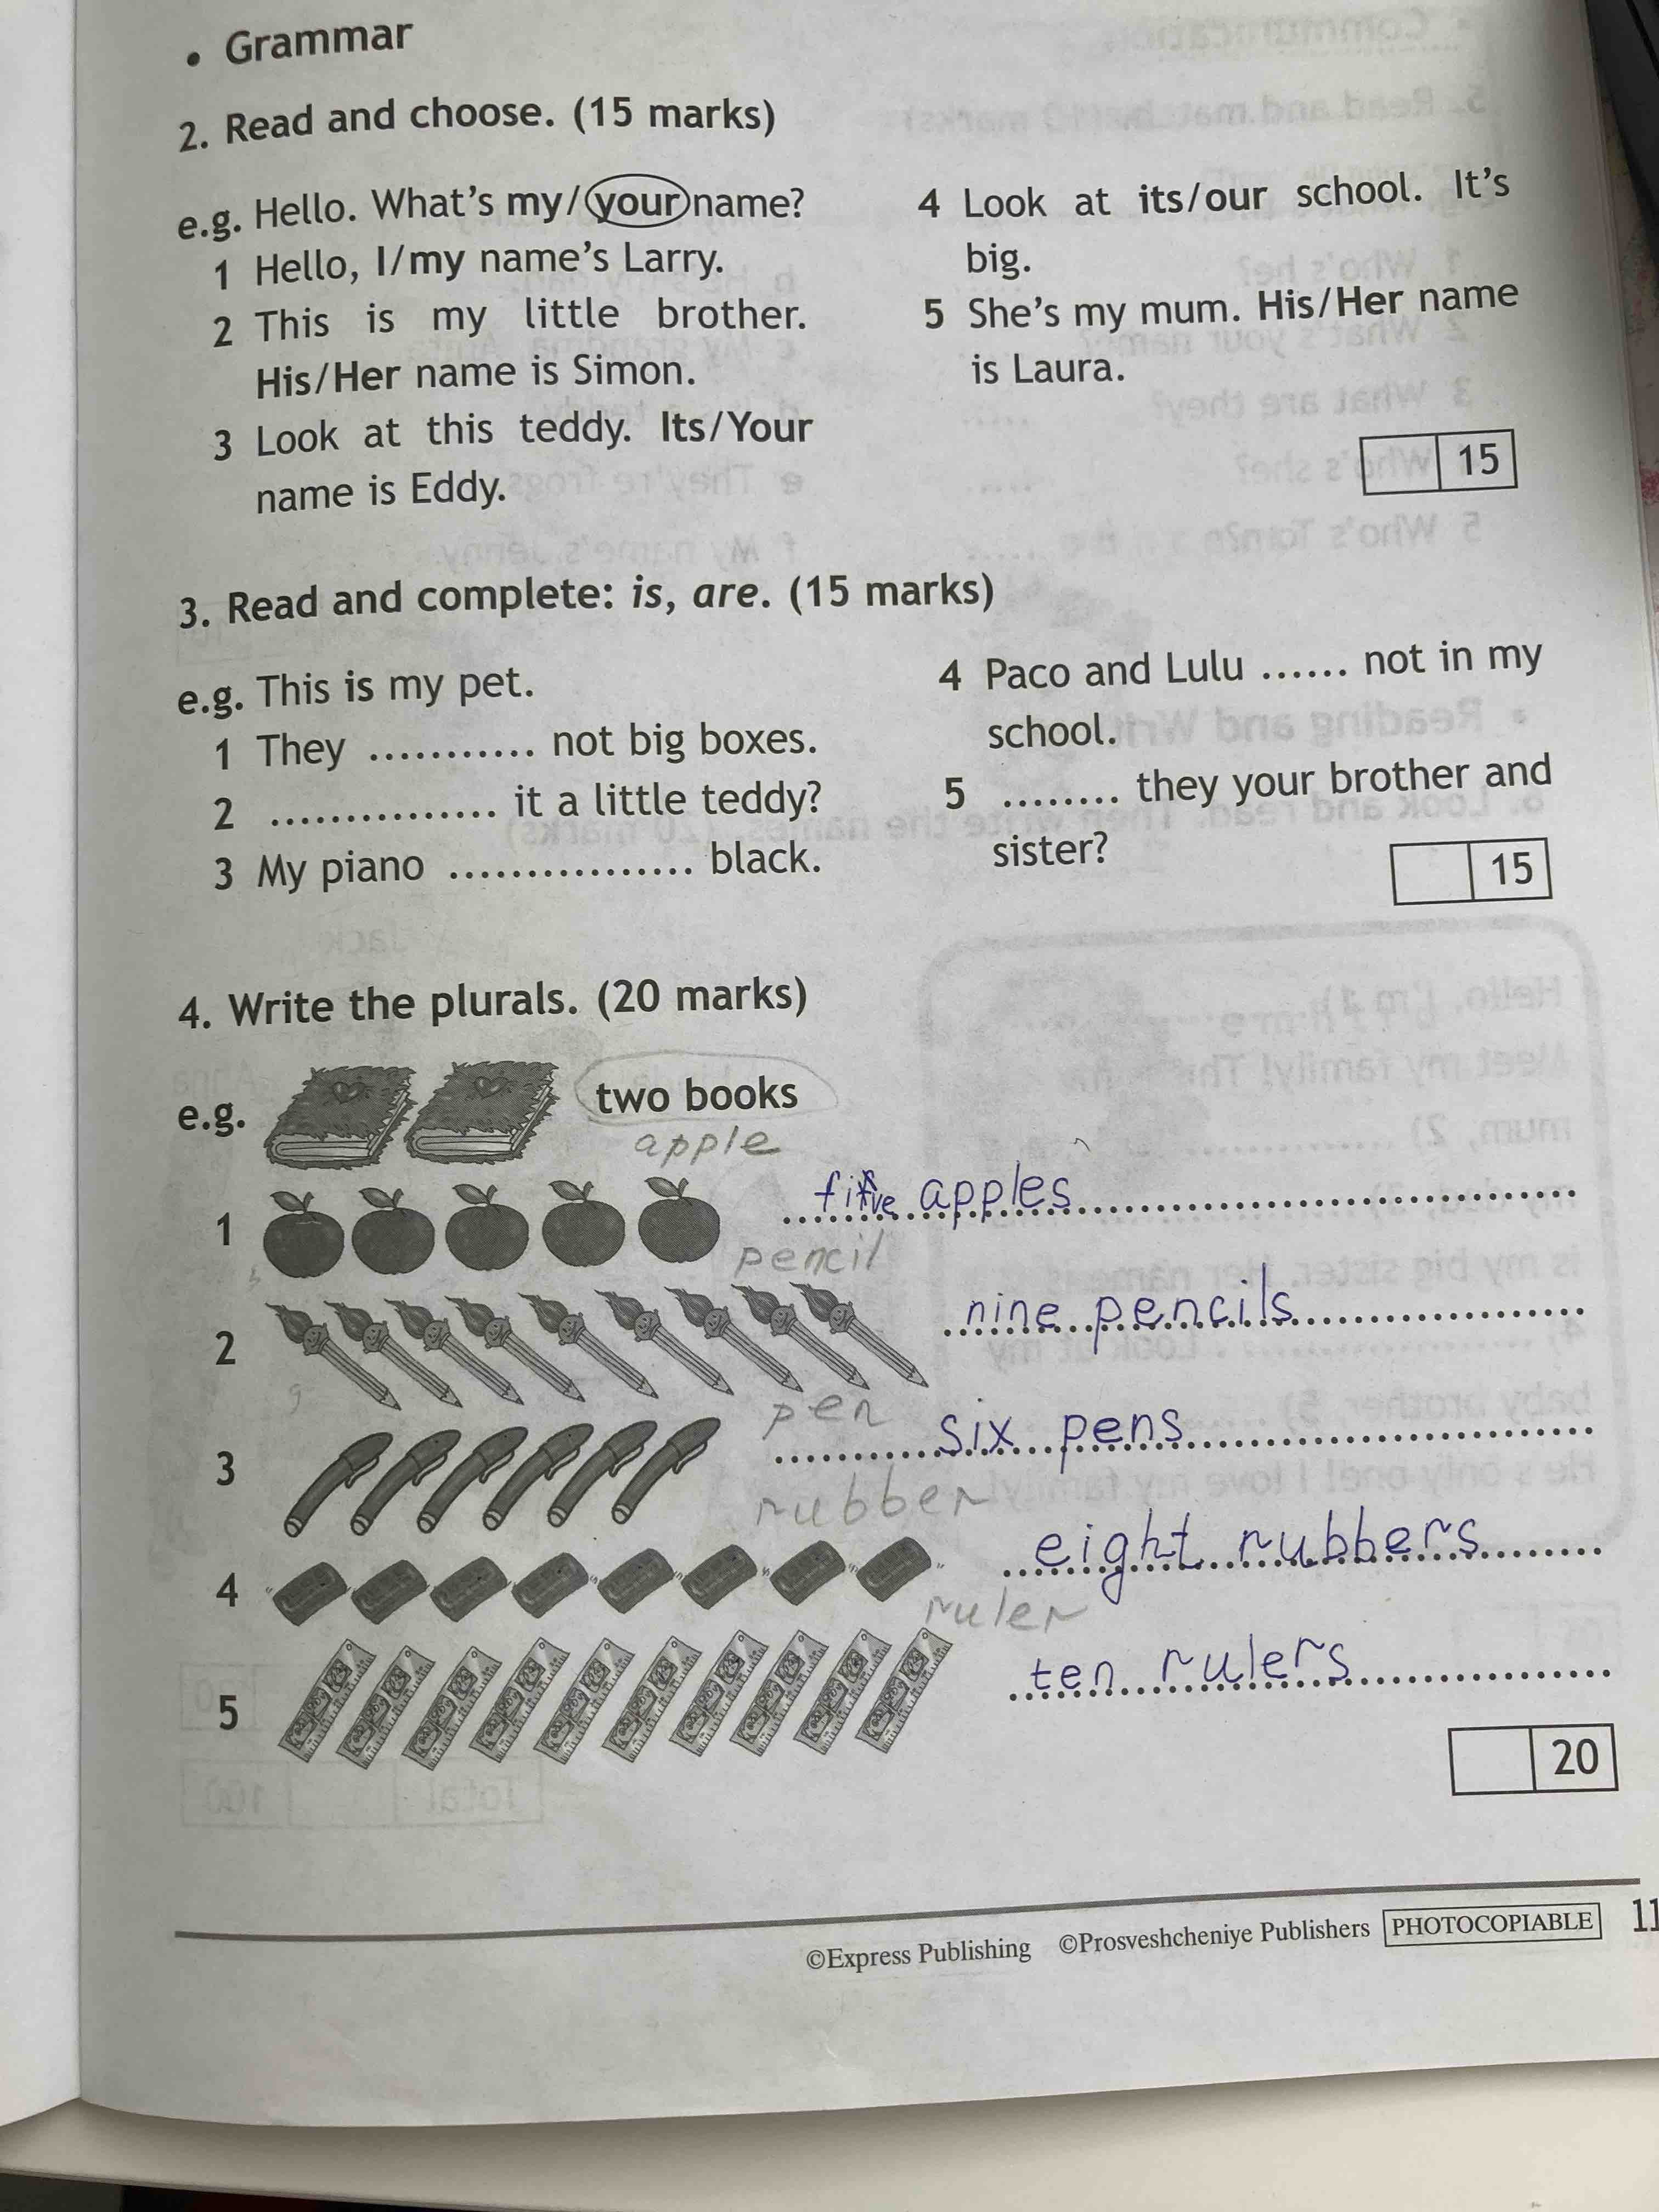 • Grammar
2. Read and choose. (15 marks)
e.g. Hello. What's my/your name?
1 Hello, I/my name's Larry.
2 This is my little brother.
His/Her name is Simon.
3 Look at this teddy. Its/Your
name is Eddy.
4 Look at its/our school. It's
big.
5 She's my mum. His/Her name
is Laura.
15
3. Read and complete: is, are. (15 marks)
e.g. This is my pet.
1 They ........... not big boxes.
2 ............... it a little teddy?
3 My piano ................ black.
4 Paco and Lulu ...... not in my
school.
5 ........ they your brother and
sister?
15
4. Write the plurals. (20 marks)
e.g. two books
apple
1 five apples
pencil
2 nine pencils
pen
3 six pens
rubber
4 eight rubbers
ruler
5 ten rulers
20
©Express Publishing ©Prosveshcheniye Publishers PHOTOCOPIABLE 11